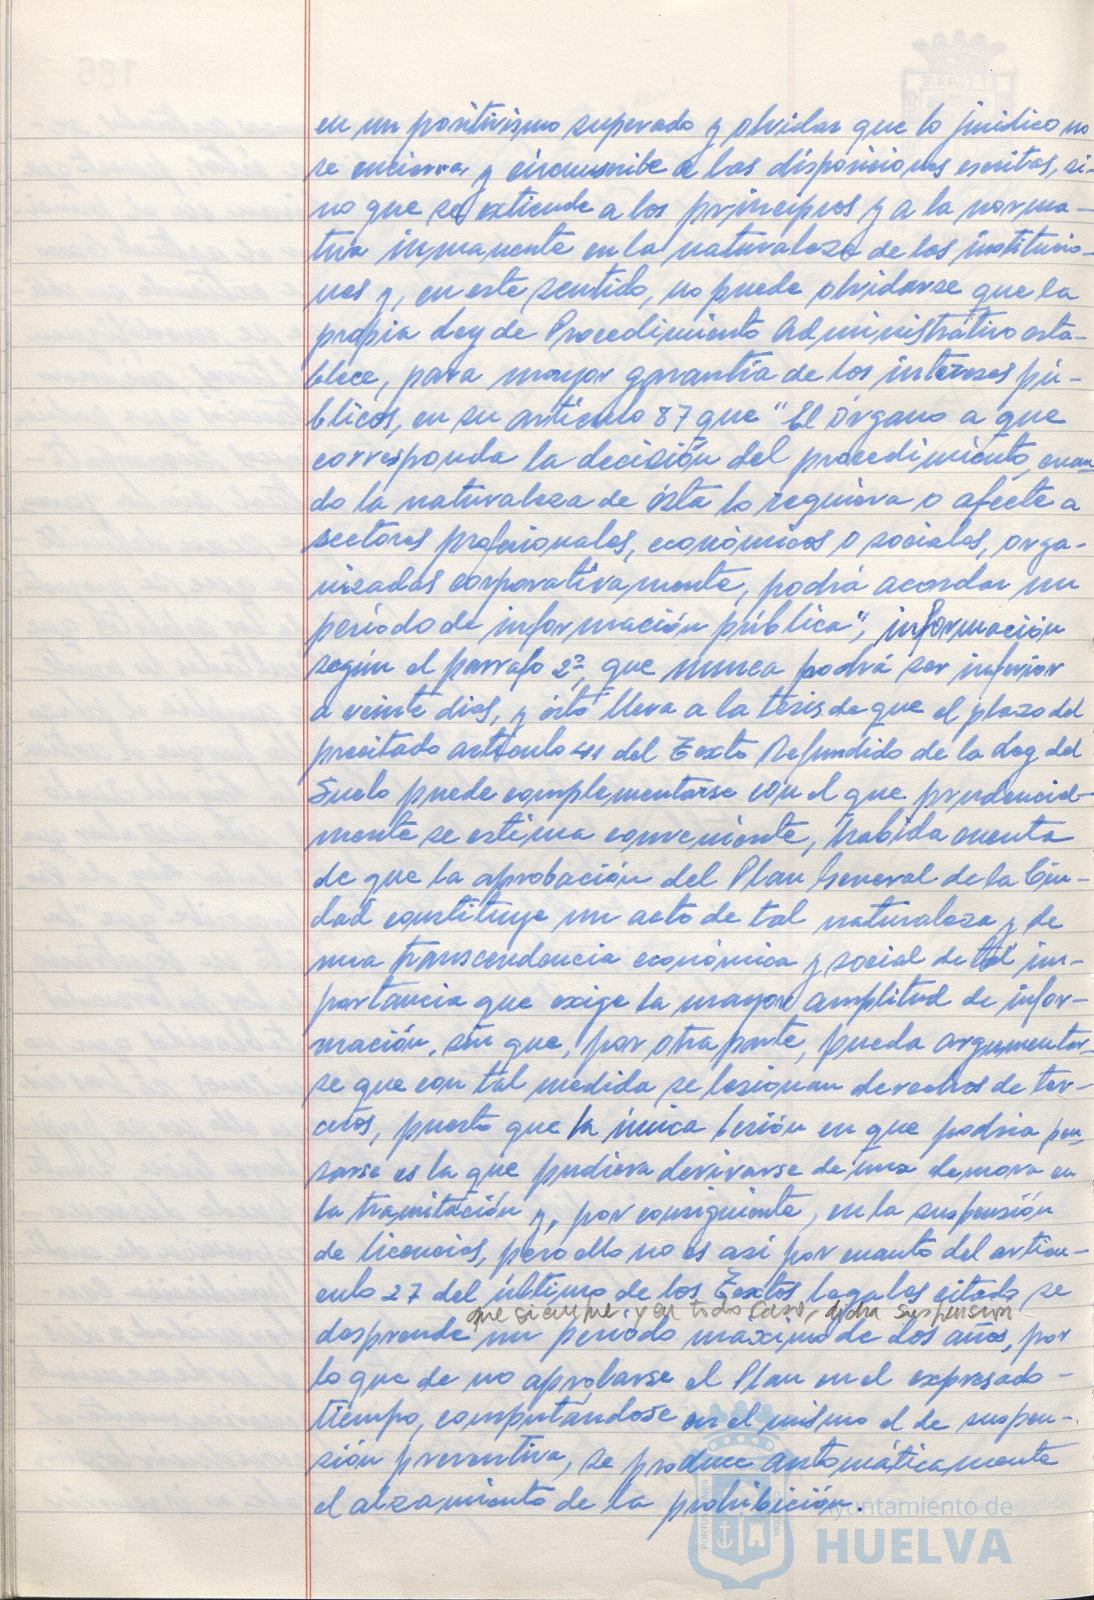 en un positivismo superado y olvidar que lo jurídico no
se encierra y circunscribe a las disposiciones escritas, si-
no que se extiende a los principios y a la norma-
tiva inmanente en la naturaleza de las institucio-
nes y, en este sentido, no puede olvidarse que la
propia Ley de Procedimiento Administrativo esta-
blece, para mayor garantía de los intereses pú-
blicos, en su artículo 87 que "El órgano a que
corresponda la decisión del procedimiento, cuan
do la naturaleza de ésta lo requiera o afecte a
sectores profesionales, económicos o sociales, orga-
nizadas corporativamente, podrá acordar un
período de información pública", información
según el parrafo 2º, que nunca podrá ser inferior
a veinte dias, y ésto lleva a la tesis de que el plazo del
precitado artículo 41 del Texto Refundido de la Ley del
Suelo puede complementarse con el que prudencial-
mente se estima conveniente, habida cuenta
de que la aprobación del Plan General de la Ciu-
dad constituye un acto de tal naturaleza y de
una transcendencia económica y social de tal im-
portancia que exige la mayor amplitud de infor-
mación, sin que, por otra parte, pueda argumentar-
se que con tal medida se lesionan derechos de ter-
ceros, puesto que la única lesión en que podria pen
sarse es la que pudiera derivarse de una demora en
la tramitación y, por consiguiente, en la suspensión
de licencias, pero ello no es así por cuanto del artícu-
culo 27 del último de los Textos legales citado se
que siempre y en todo caso, dicha suspension
desprende un período maximo de dos años, por
lo que de no aprobarse el Plan en el expresado -
tiempo, computándose en el mismo el de suspen-
sión preventiva, se produce automáticamente
el alzamiento de la prohibición.
Ayuntamiento de
HUELVA